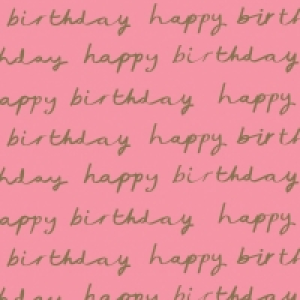 birthday happy birth
hday happy birthday
appy birthday happy
birthday happy birth
hday happy birthday
happy birthday happy
birthday happy birth
hday happy birthday